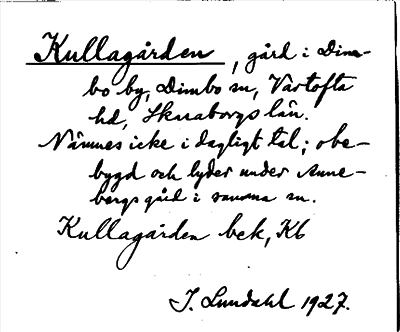 Kullagården, gård i Dim-
bo by, Dimbo sn, Vartofta
hd, Skaraborgs län.
Nämnes icke i dagligt tal; obe-
bygd och lyder under Anne-
bergs gård i samma sn.
Kullagården bek, Kb
I. Lundahl 1927.